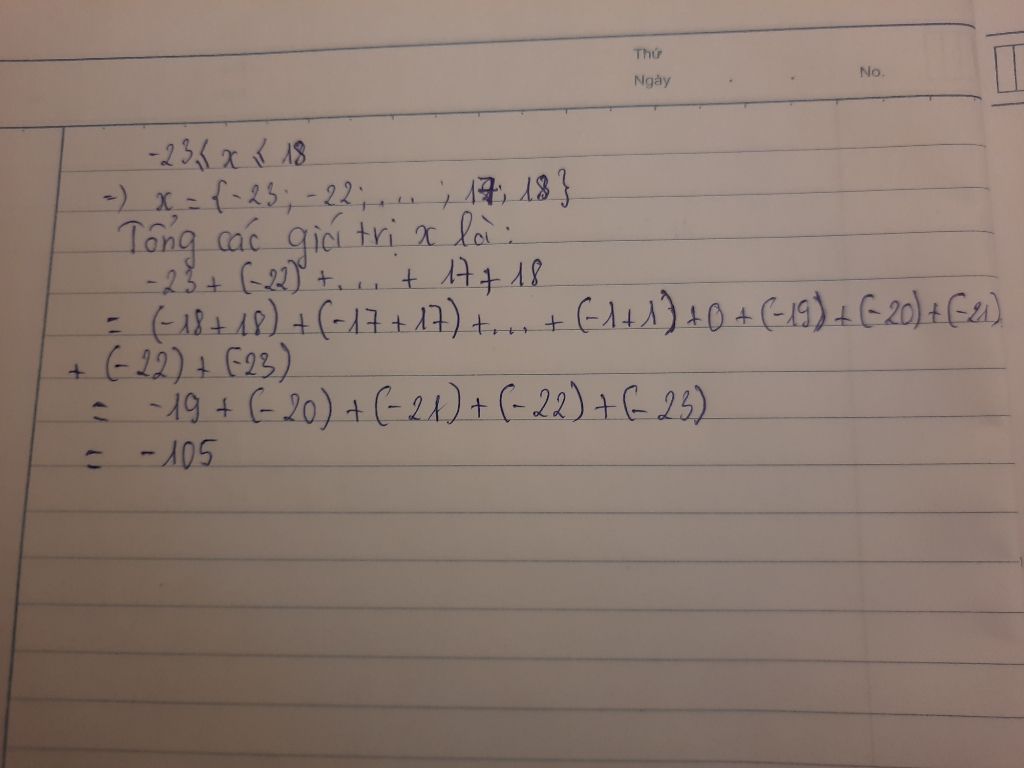 Thứ
Ngày . . No.
-23 ⩽ x ⩽ 18
=) x = {-23; -22; ... ; 17; 18}
Tổng các giá trị x là:
-23 + (-22) + ... + 17 + 18
= (-18 + 18) + (-17 + 17) + ... + (-1 + 1) + 0 + (-19) + (-20) + (-21)
+ (-22) + (-23)
= -19 + (-20) + (-21) + (-22) + (-23)
= -105